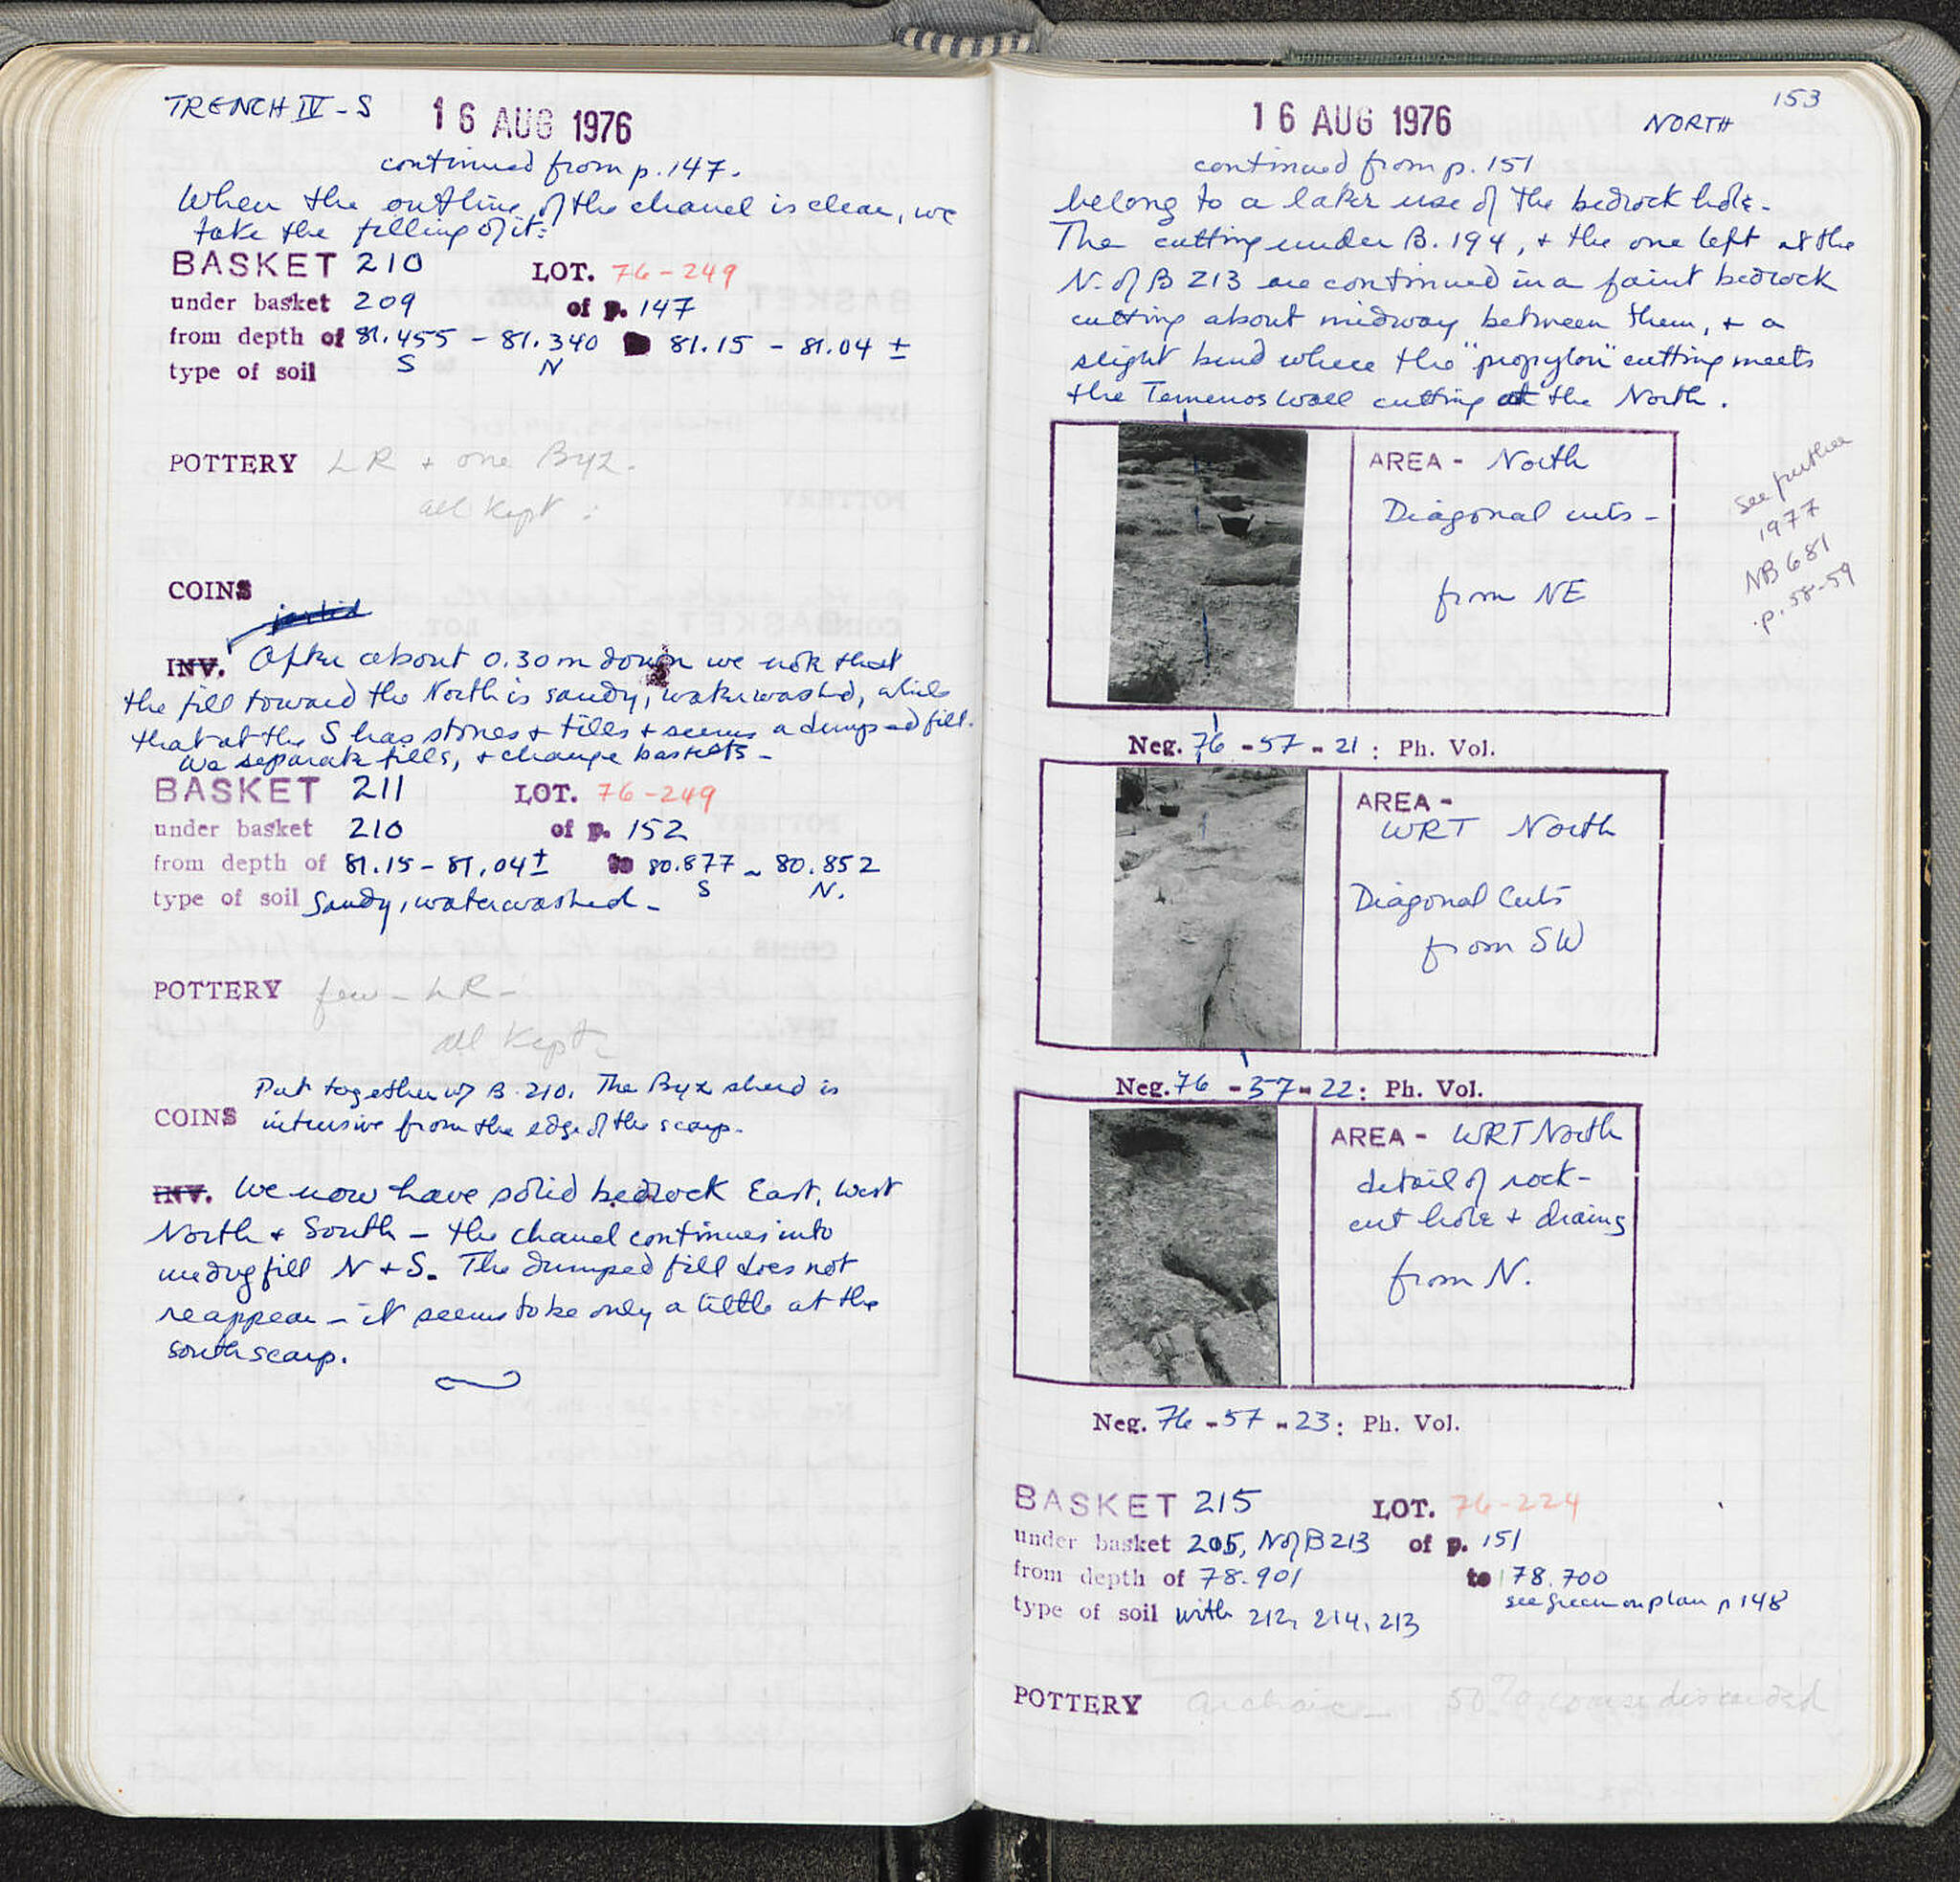 TRENCH IV - S
16 AUG 1976
continued from p. 147.
When the outline of the chanel is clear, we
take the filling of it:
BASKET 210 LOT. 76-249
under basket 209 of p. 147
from depth of 81.455 - 81.340 81.15 - 81.04 ±
type of soil S N
POTTERY LR + one Byz.
all kept :
COINS
INV. After about 0.30m down we note that
the fill toward the North is sandy, waterwashed, while
that at the S has stones + tiles + seems a dumped fill.
we separate fills, + change baskets -
BASKET 211 LOT. 76-249
under basket 210 of p. 152
from depth of 81.15 - 81.04± to 80.877 - 80.852
type of soil Sandy, waterwashed - S N.
POTTERY few - LR -
all kept
Put together w/ B. 210. The Byz sherd is
COINS intrusive from the edge of the scarp.
INV. We now have solid bedrock East, West
North + South - the chanel continues into
undug fill N + S. The dumped fill does not
reappear - it seems to be only a little at the
south scarp.
153
16 AUG 1976 NORTH
continued from p. 151
belong to a later use of the bedrock hole.
The cutting under B. 194, + the one left at the
N. of B 213 are continued in a faint bedrock
cutting about midway between them, + a
slight bend where the "propylon" cutting meets
the Temenos Wall cutting at the North.
AREA - North
Diagonal cuts -
from NE
see further
1977
NB 681
p. 58-59
Neg. 76 - 57 - 21 : Ph. Vol.
AREA -
WRT North
Diagonal Cuts
from SW
Neg. 76 - 57 - 22 : Ph. Vol.
AREA - WRT North
detail of rock-
cut hole + drains
from N.
Neg. 76 - 57 - 23 : Ph. Vol.
BASKET 215 LOT. 76-224
under basket 205, N of B 213 of p. 151
from depth of 78.901 to 78.700
see green on plan p 148
type of soil with 212, 214, 213
POTTERY Archaic - 50% coarse discarded